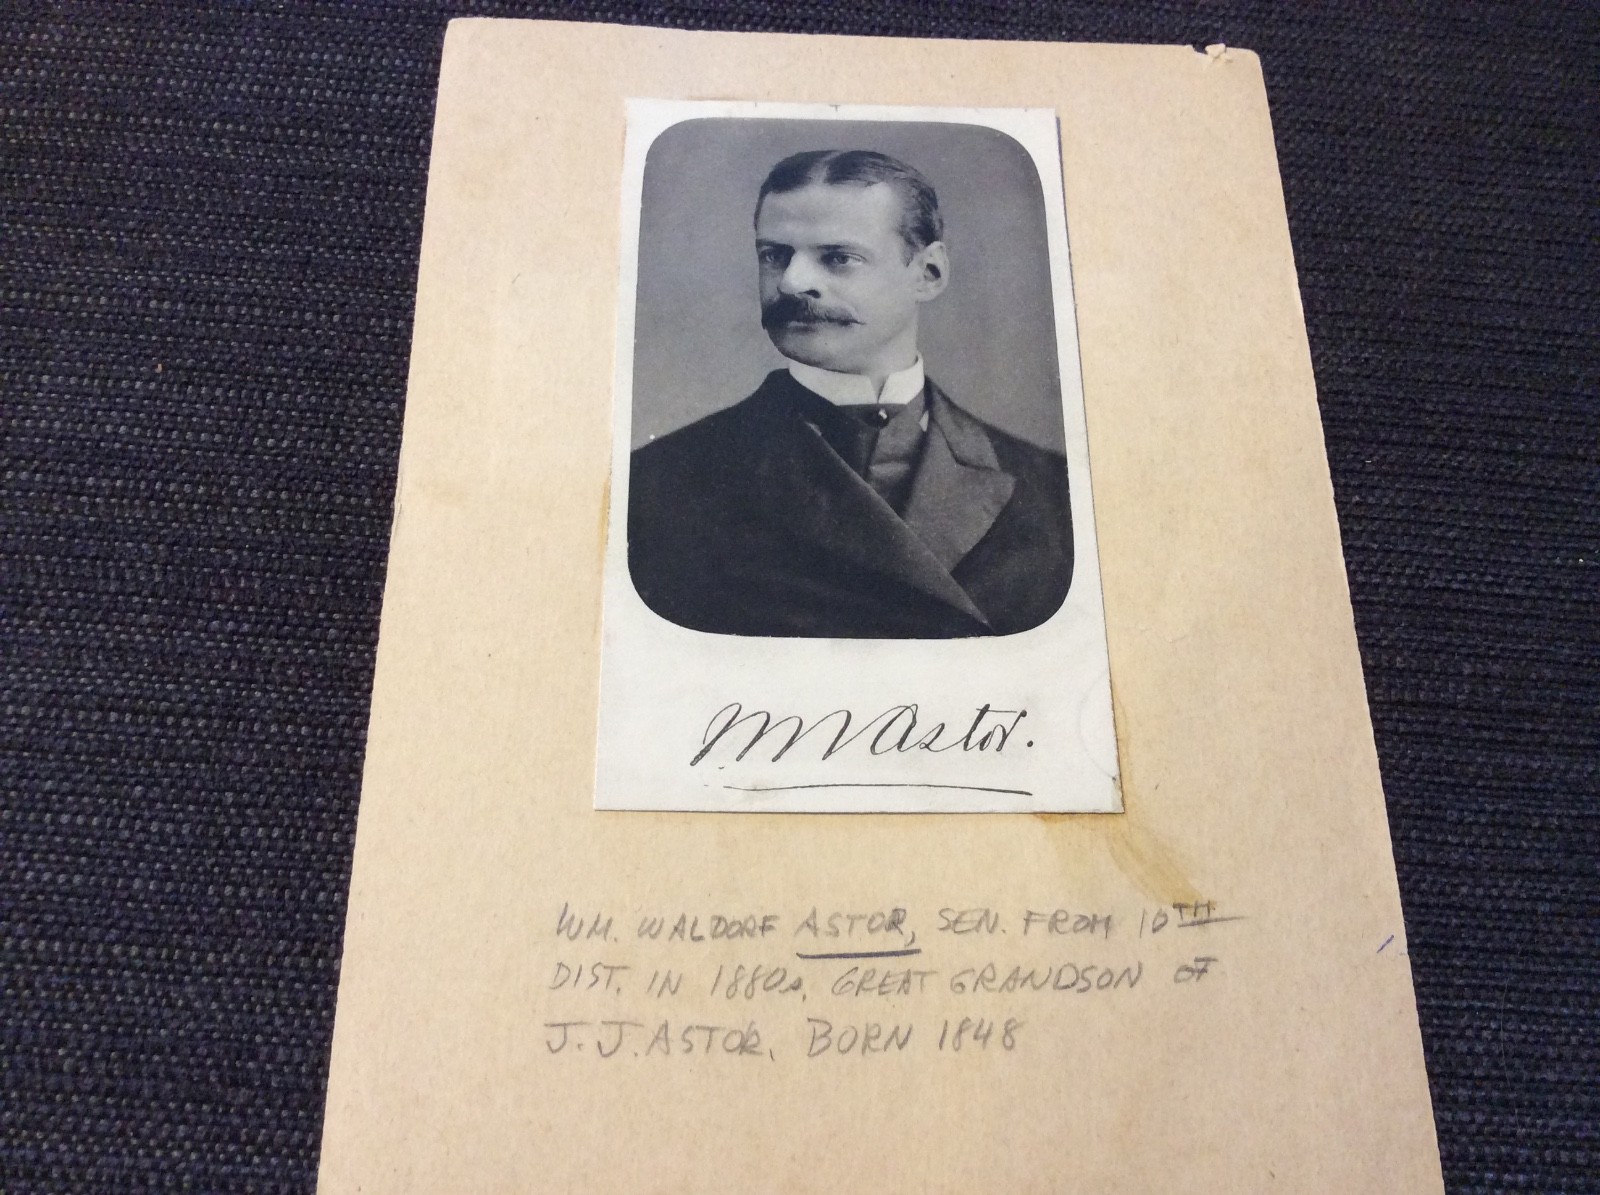 WW Astor.
WM. WALDORF ASTOR, SEN. FROM 10TH
DIST. IN 1880s, GREAT GRANDSON OF
J.J. ASTOR, BORN 1848